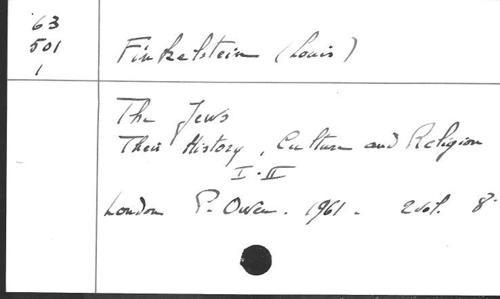 63
501
1
Finkelstein (Louis)
The Jews
Their History, Culture and Religion
I-II
London P. Owen. 1961. 2 vol. 8°